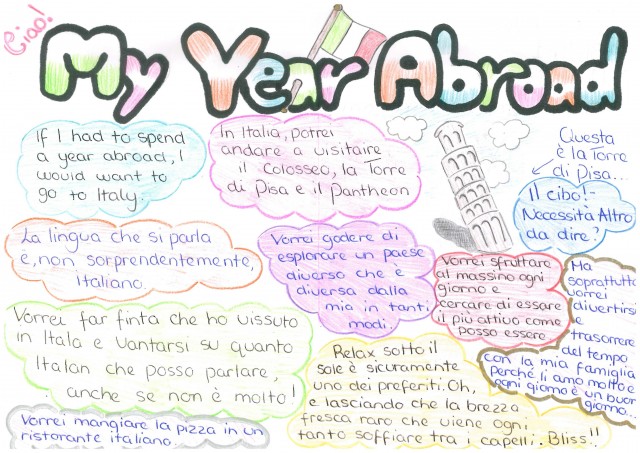 Ciao!
My Year Abroad
If I had to spend
a year abroad, I
would want to
go to Italy.
In Italia, potrei
andare a visitaire
il Colosseo, la Torre
di Pisa e il Pantheon
Questa
è la Torre
di Pisa...
Il cibo!-
Necessità Altro
da dire?
La lingua che si parla
è, non sorprendentemente,
Italiano.
Vorrei godere di
esplorare un paese
diverso che è
diversa dalla
mia in tanti
modi.
Vorrei sfruttare
al massino ogni
giorno e
cercare di essare
il più attivo come
posso essere
Ma
soprattutto
vorrei
divertirsi
e
trasorrere
del tempo
con la mia famiglia
perché li amo molto e
ogni giorno è un buon
giorno...
Vorrei far finta che ho vissuto
in Itala e Vantarsi su quanto
Italan che posso parlare,
anche se non è molto!
Relax sotto il
sole è sicuramente
uno dei preferiti. Oh,
e lasciando che la brezza
fresca raro che viene ogni
tanto soffiare tra i capelli. Bliss!!
Vorrei mangiare la pizza in un
ristorante italiano.